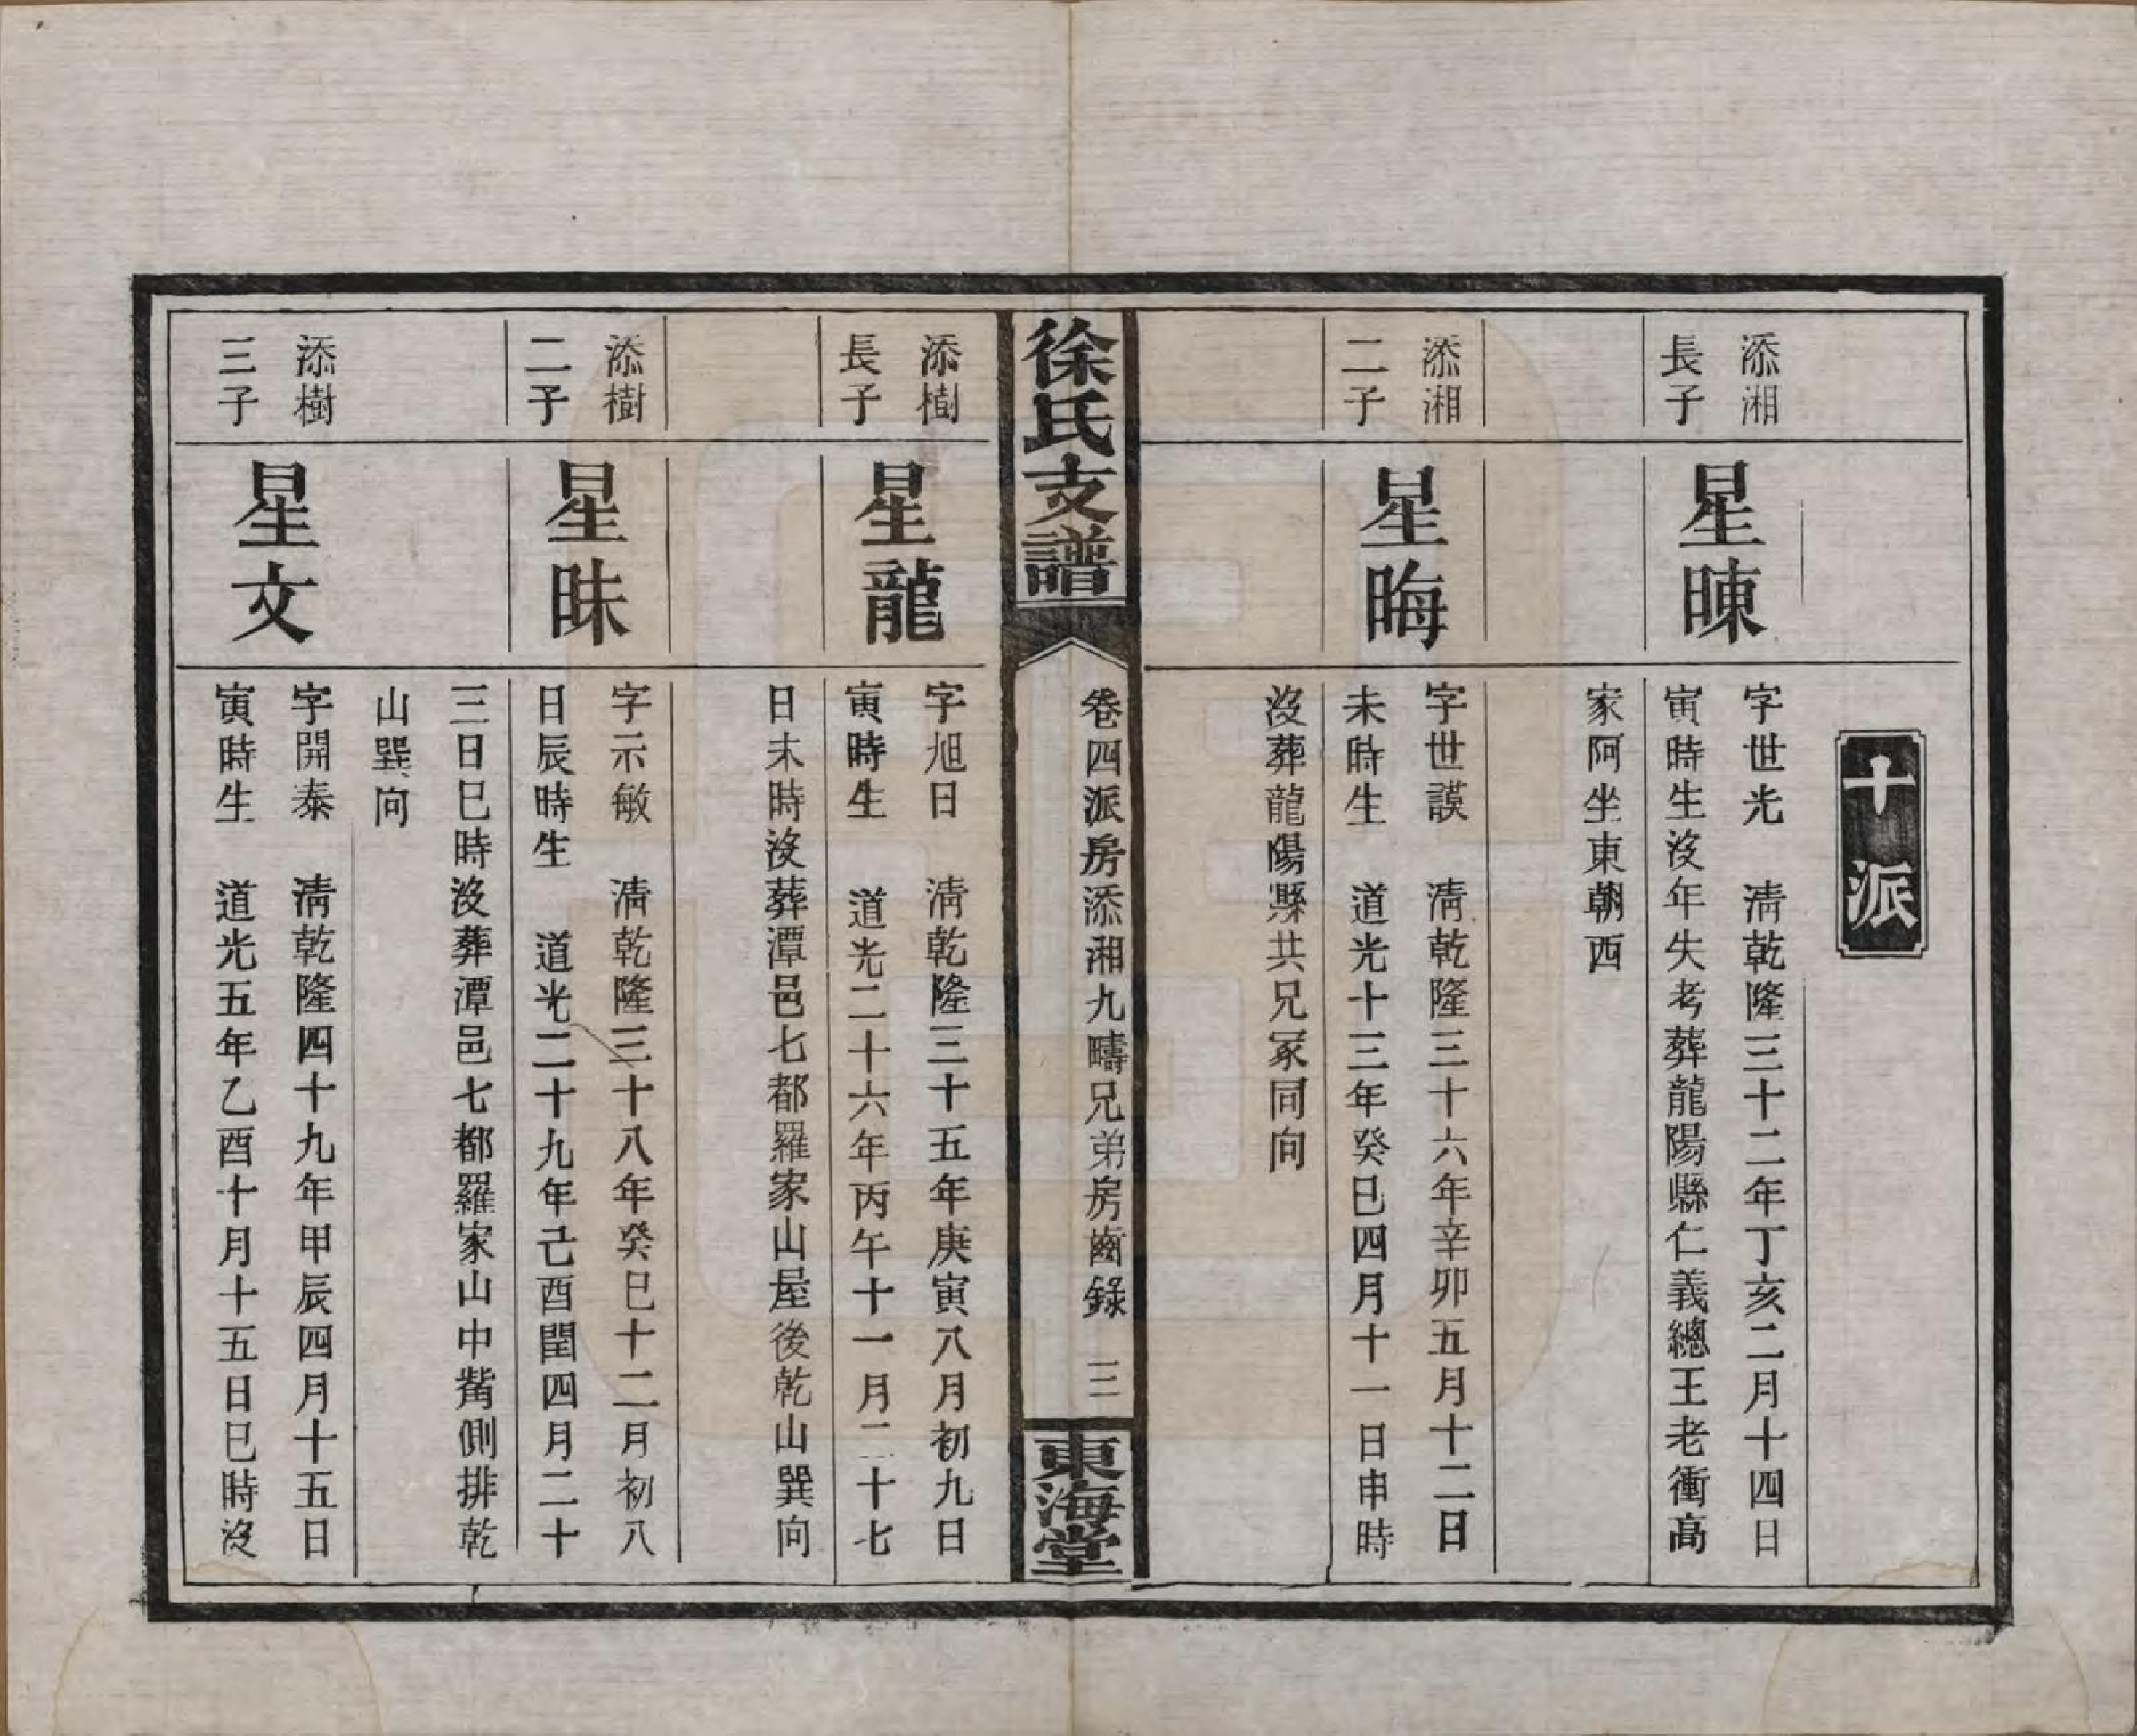 十派
添湘
長子
星暕
字世光　清乾隆三十二年丁亥二月十四日
寅時生沒年失考葬龍陽縣仁義總王老衝高
家阿坐東朝西
添湘
二子
星晦
字世謨　清乾隆三十六年辛卯五月十二日
未時生　道光十三年癸巳四月十一日申時
沒葬龍陽縣共兄冢同向
徐氏支譜
卷四派房添湘九疇兄弟房齒錄　三
東海堂
添樹
長子
星龍
字旭日　清乾隆三十五年庚寅八月初九日
寅時生　道光二十六年丙午十一月二十七
日未時沒葬潭邑七都羅家山屋後乾山巽向
添樹
二子
星昧
字示敏　清乾隆三十八年癸巳十二月初八
日辰時生　道光二十九年己酉閏四月二十
三日巳時沒葬潭邑七都羅家山中觜側排乾
山巽向
添樹
三子
星文
字開泰　清乾隆四十九年甲辰四月十五日
寅時生　道光五年乙酉十月十五日巳時沒